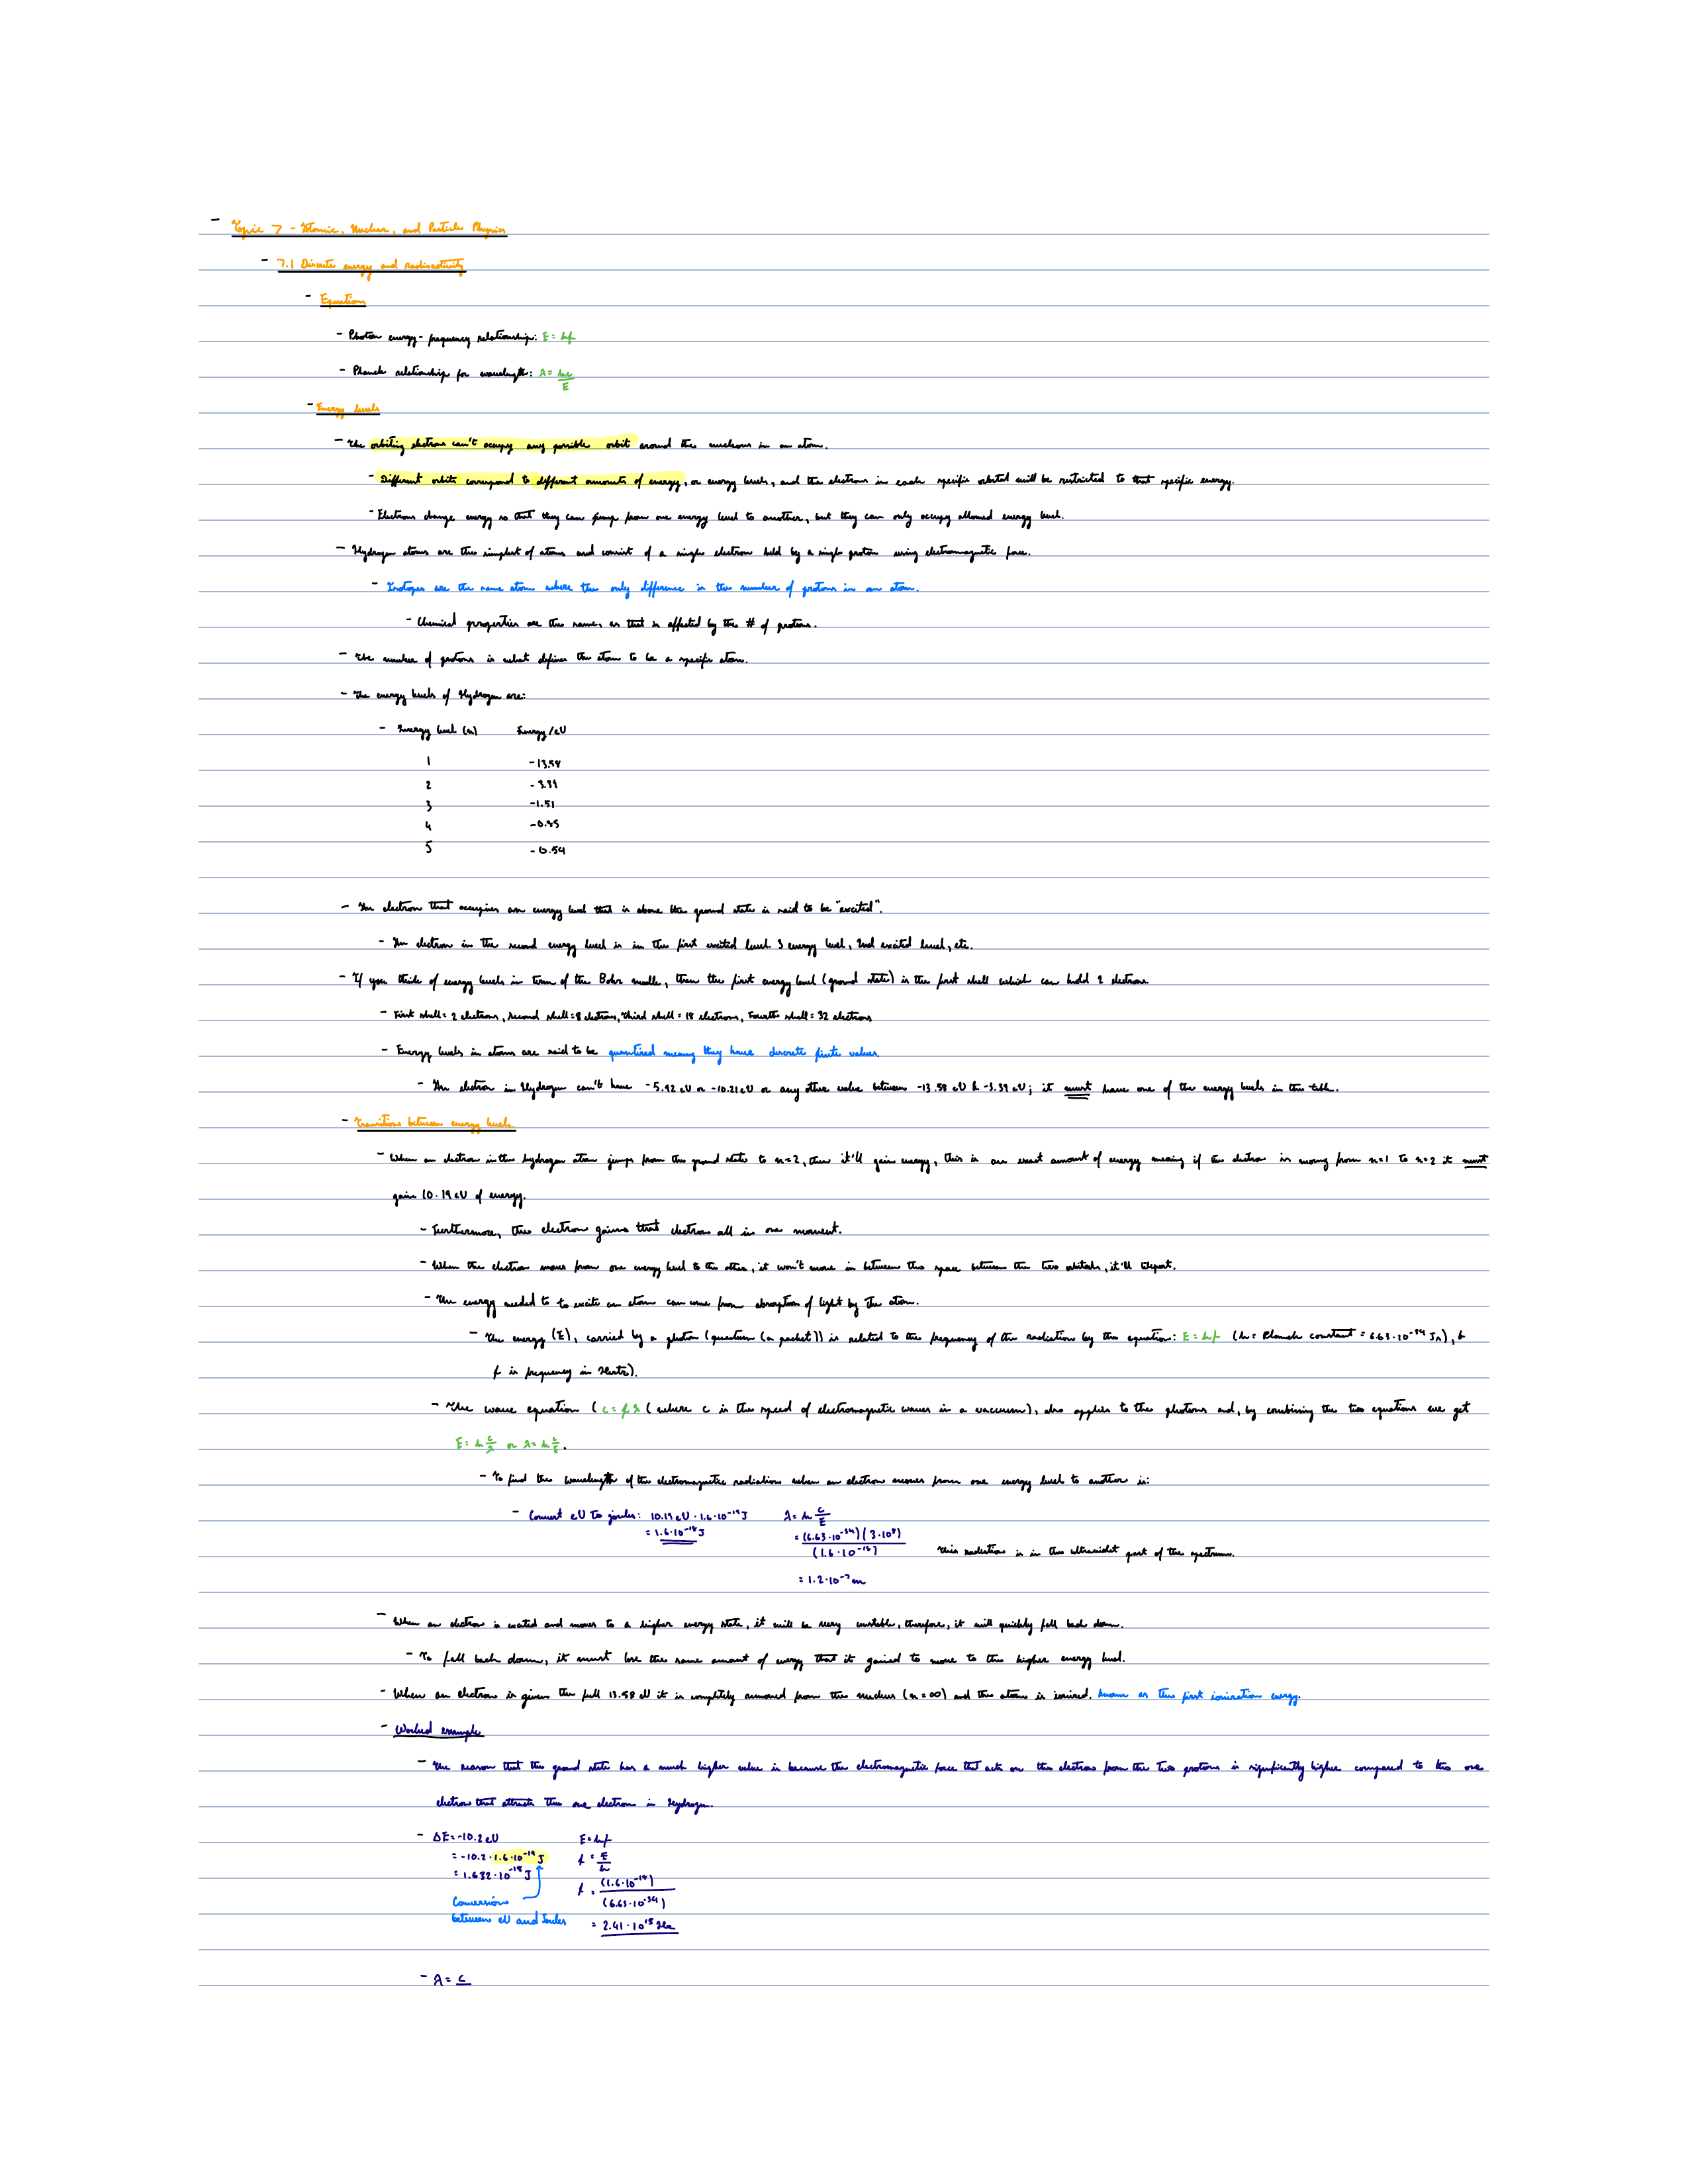 - Topic 7 - Atomic, Nuclear, and Particle Physics
- 7.1 Discrete energy and radioactivity
- Equation
- Photon energy - frequency relationship: E = hf
- Planck relationship for wavelength: λ = hc/E
- Energy levels
- The orbiting electrons can't occupy any possible orbit around the nucleons in an atom.
- Different orbits correspond to different amounts of energy, or energy levels, and the electrons in each specific orbital will be restricted to that specific energy.
- Electrons change energy so that they can jump from one energy level to another, but they can only occupy allowed energy level.
- Hydrogen atoms are the simplest of atoms and consist of a single electron held by a single proton using electromagnetic force.
- Isotopes are the same atom where the only difference is the number of protons in an atom.
- Chemical properties are the same, as that is affected by the # of protons.
- The number of protons is what defines the atom to be a specific atom.
- The energy levels of Hydrogen are:
- Energy level (n) Energy/eV
1 -13.58
2 -3.39
3 -1.51
4 -0.85
5 -0.54
- An electron that occupies an energy level that is above the ground state is said to be "excited".
- An electron in the second energy level is in the first excited level. 3 energy level, 2nd excited level, etc.
- If you think of energy levels in term of the Bohr modle, then the first energy level (ground state) is the first shell which can hold 2 electrons
- First shell = 2 electrons, second shell = 8 electrons, third shell = 18 electrons, Fourth shell = 32 electrons
- Energy levels in atoms are said to be quantized meaning they have discrete finite values
- An electron in Hydrogen can't have -5.92 eV or -10.21 eV or any other value between -13.58 eV & -3.39 eV; it must have one of the energy levels in the table.
- Transitions between energy levels.
- When an electron in the hydrogen atom jumps from the ground state to n=2, then it'll gain energy, this is an exact amount of energy meaning if the electron is moving from n=1 to n=2 it must
gain 10.19 eV of energy.
- Furthermore, the electron gains that electron all in one moment.
- When the electron moves from one energy level to the other, it won't move in between the space between the two orbitals, it'll teleport.
- The energy needed to to excite an atom can come from absorption of light by the atom.
- The energy (E), carried by a photon (quantum (a packet)) is related to the frequency of the radiation by the equation: E = hf (h = Planck constant = 6.63·10⁻³⁴ Js), &
f is frequency in Hertz).
- The wave equation (c = fλ (where c is the speed of electromagnetic waves in a vacuum), also applies to the photons and, by combining the two equations we get
E = h c/λ or λ = h c/E.
- To find the wavelength of the electromagnetic radiation when an electron moves from one energy level to another is:
- Convert eV to joules: 10.19 eV · 1.6·10⁻¹⁹ J λ = h c/E
= 1.6·10⁻¹⁸ J = (6.63·10⁻³⁴)(3·10⁸)/(1.6·10⁻¹⁸) This radiation is in the ultraviolet part of the spectrum.
= 1.2·10⁻⁷ m
- When an electron is excited and moves to a higher energy state, it will be very unstable, therefore, it will quickly fall back down.
- To fall back down, it must lose the same amount of energy that it gained to move to the higher energy level.
- When an electron is given the full 13.58 eV it is completely removed from the nucleus (n=∞) and the atom is ionized. Known as the first ionization energy.
- Worked example
- The reason that the ground state has a much higher value is because the electromagnetic force that acts on the electron from the two protons is significantly higher compared to the one
electron that attracts the one electron in Hydrogen.
- ΔE = -10.2 eV E = hf
= -10.2 · 1.6·10⁻¹⁹ J f = E/h
= 1.632·10⁻¹⁸ J f = (1.6·10⁻¹⁸)/(6.63·10⁻³⁴)
Conversion
between eV and Joules = 2.41·10¹⁵ Hz
- λ = c